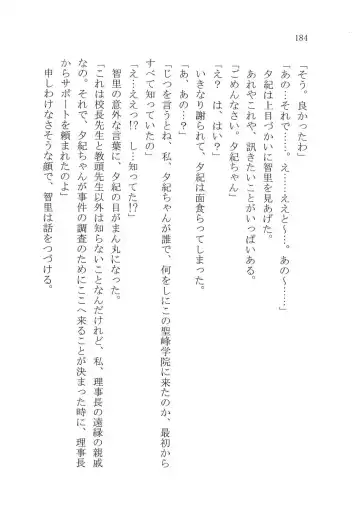 184
「そう。良かったわ」
「あの…それで……。え……ええと〜…。あの〜……」
夕紀は上目づかいに智里を見あげた。
あれやこれや、訊きたいことがいっぱいある。
「ごめんなさい、夕紀ちゃん」
「え？　は、はい？」
いきなり謝られて、夕紀は面食らってしまった。
「あ、あの…？」
「じつを言うとね、私、夕紀ちゃんが誰で、何をしにこの聖峰学院に来たのか、最初から
すべて知っていたの」
「え…ええっ!?　し…知ってた!?」
智里の意外な言葉に、夕紀の目がまん丸になった。
「これは校長先生と教頭先生以外は知らないことなんだけれど、私、理事長の遠縁の親戚
なの。それで、夕紀ちゃんが事件の調査のためにここへ来ることが決まった時に、理事長
からサポートを頼まれたのよ」
申しわけなさそうな顔で、智里は話をつづける。